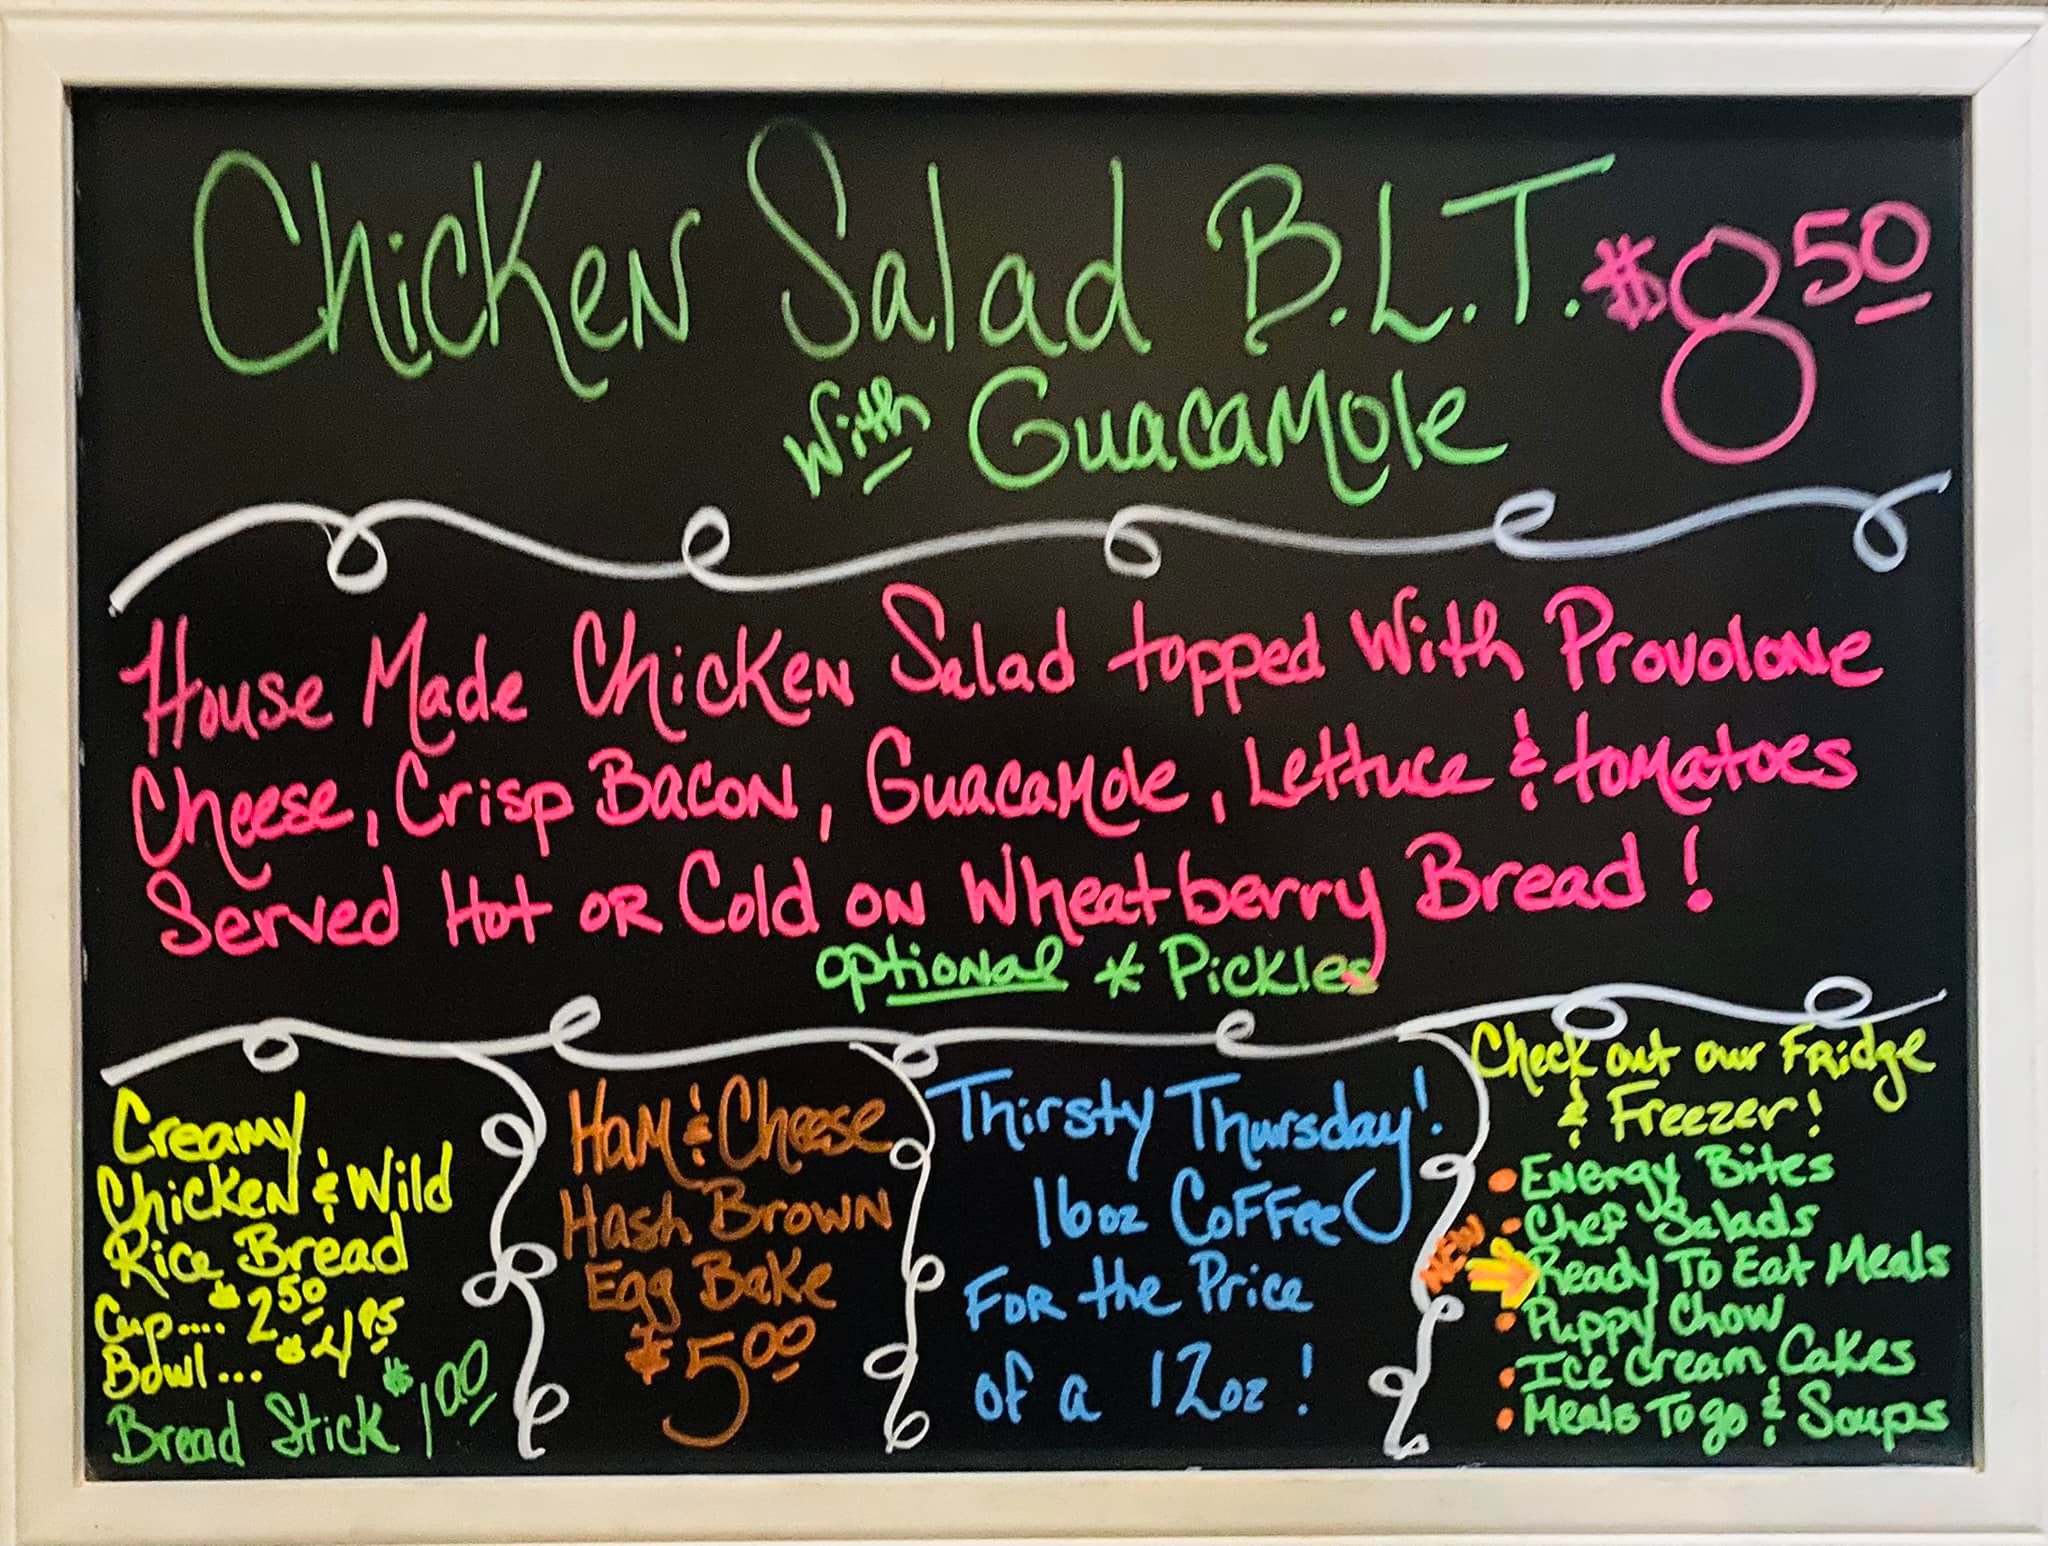 Chicken Salad B.L.T. $8.50
With Guacamole
House Made Chicken Salad topped With Provolone
Cheese, Crisp Bacon, Guacamole, Lettuce & tomatoes
Served Hot or Cold on Wheatberry Bread!
optional * Pickles
Creamy
Chicken & Wild
Rice Bread
Cup.... $2.50
Bowl... $4.95
Bread Stick $1.00
Ham & Cheese
Hash Brown
Egg Bake
$5.00
Thirsty Thursday!
16oz Coffee
For the Price
of a 12oz!
Check out our Fridge
& Freezer!
• Energy Bites
• Chef Salads
NEW Ready To Eat Meals
• Puppy Chow
• Ice Cream Cakes
• Meals To go & Soups